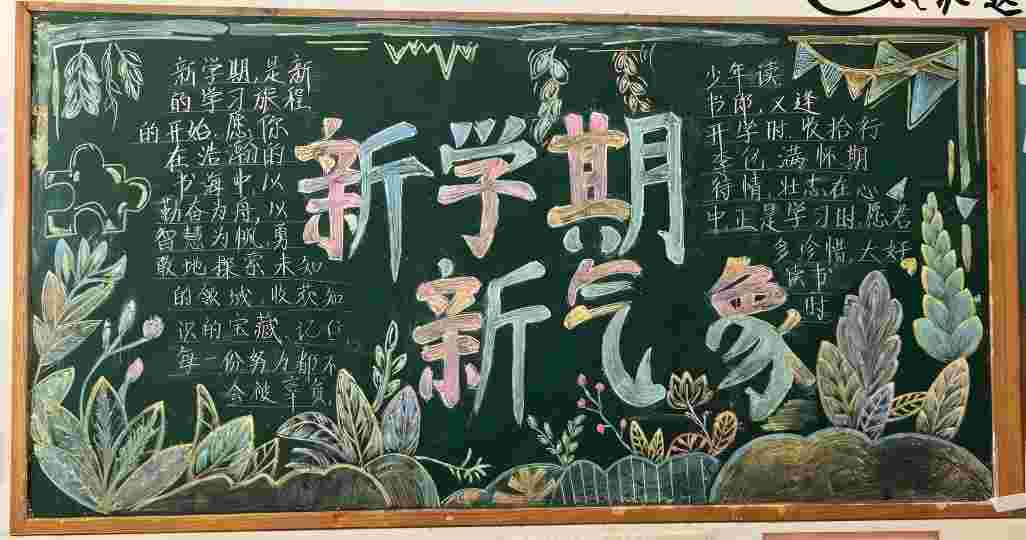 新学期,是新
的学习旅程
的开始.愿你
在浩瀚的
书海中,以
勤奋为舟,以
智慧为帆,勇
敢地探索未知
的领域,收获知
识的宝藏,记住,
每一份努力都不
会被辜负.
新学期
新气象
少年读
书郎,又逢
开学时.收拾行
李包,满怀期
待情.壮志在心
中正是学习时.愿君
多珍惜,大好
读书
时